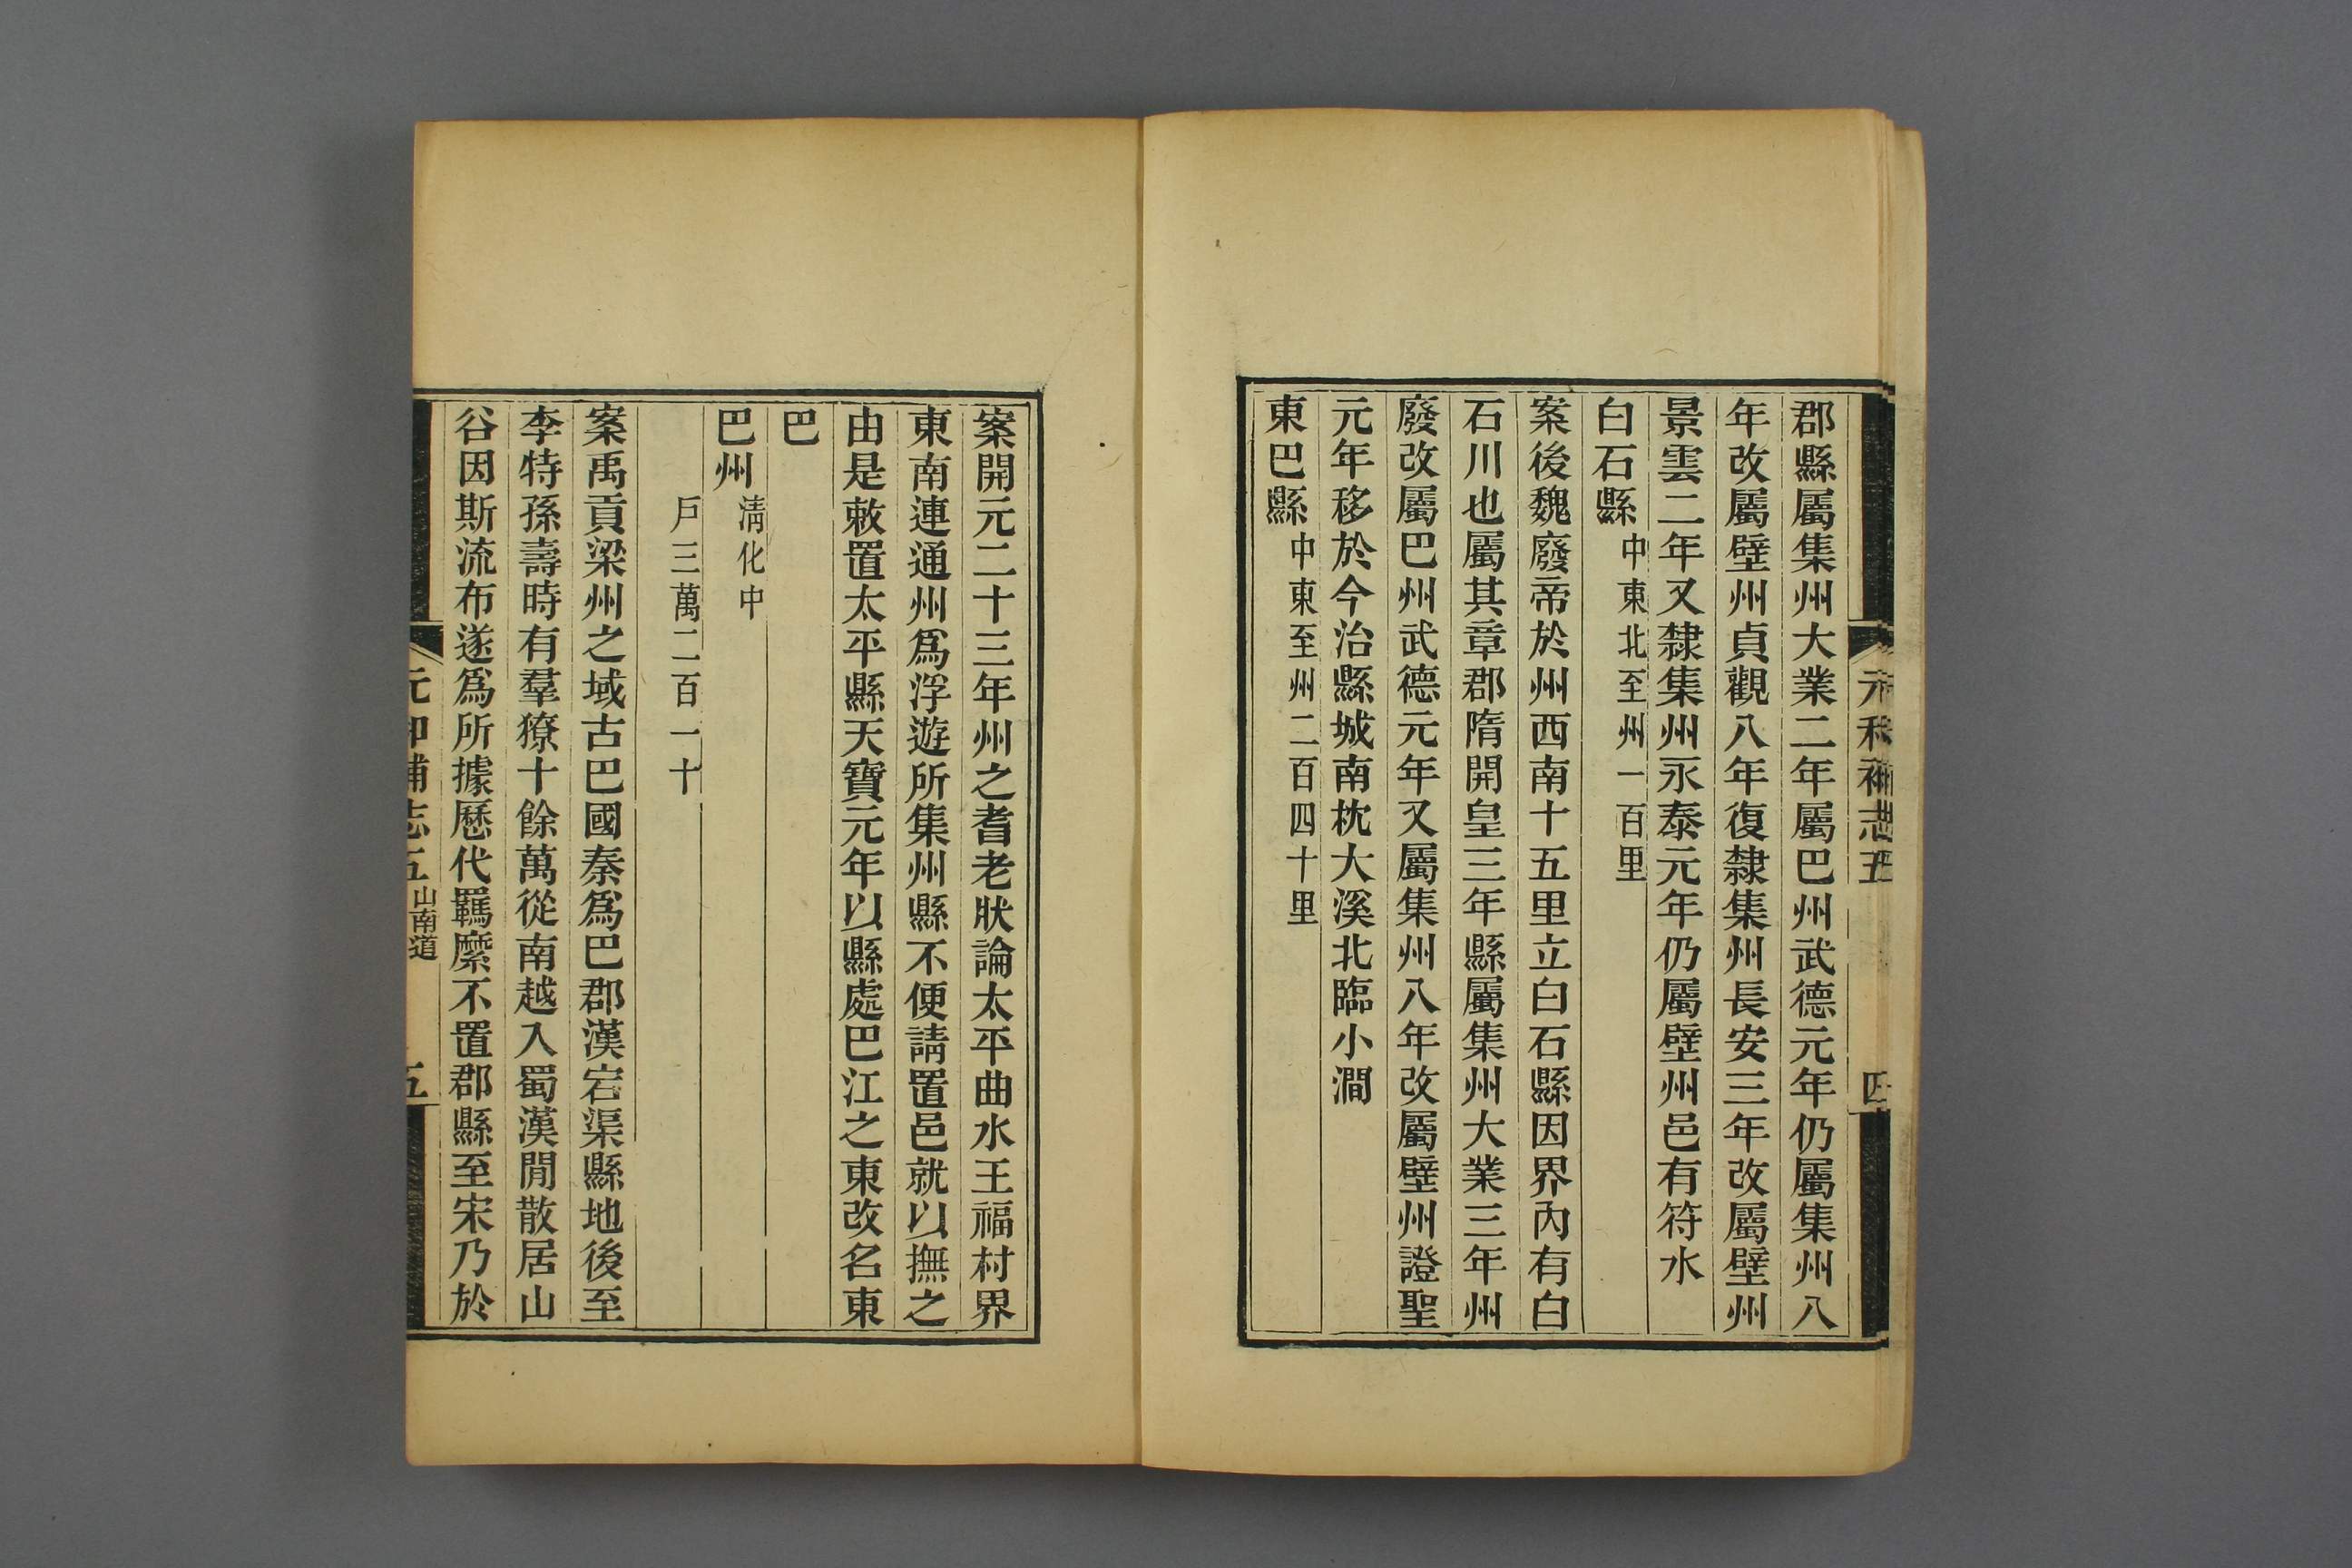 元和補志五 四
郡縣屬集州大業二年屬巴州武德元年仍屬集州八
年改屬壁州貞觀八年復隸集州長安三年改屬壁州
景雲二年又隸集州永泰元年仍屬壁州邑有符水
白石縣中東北至州一百里
案後魏廢帝於州西南十五里立白石縣因界內有白
石川也屬其章郡隋開皇三年縣屬集州大業三年州
廢改屬巴州武德元年又屬集州八年改屬壁州證聖
元年移於今治縣城南枕大溪北臨小澗
東巴縣中東至州二百四十里
案開元二十三年州之耆老狀論太平曲水王福村界
東南連通州爲浮遊所集州縣不便請置邑就以撫之
由是敕置太平縣天寶元年以縣處巴江之東改名東
巴
巴州清化中
戶三萬二百一十
案禹貢梁州之域古巴國秦爲巴郡漢宕渠縣地後至
李特孫壽時有羣獠十餘萬從南越入蜀漢閒散居山
谷因斯流布遂爲所據歷代羈縻不置郡縣至宋乃於
元和補志五 山南道 五